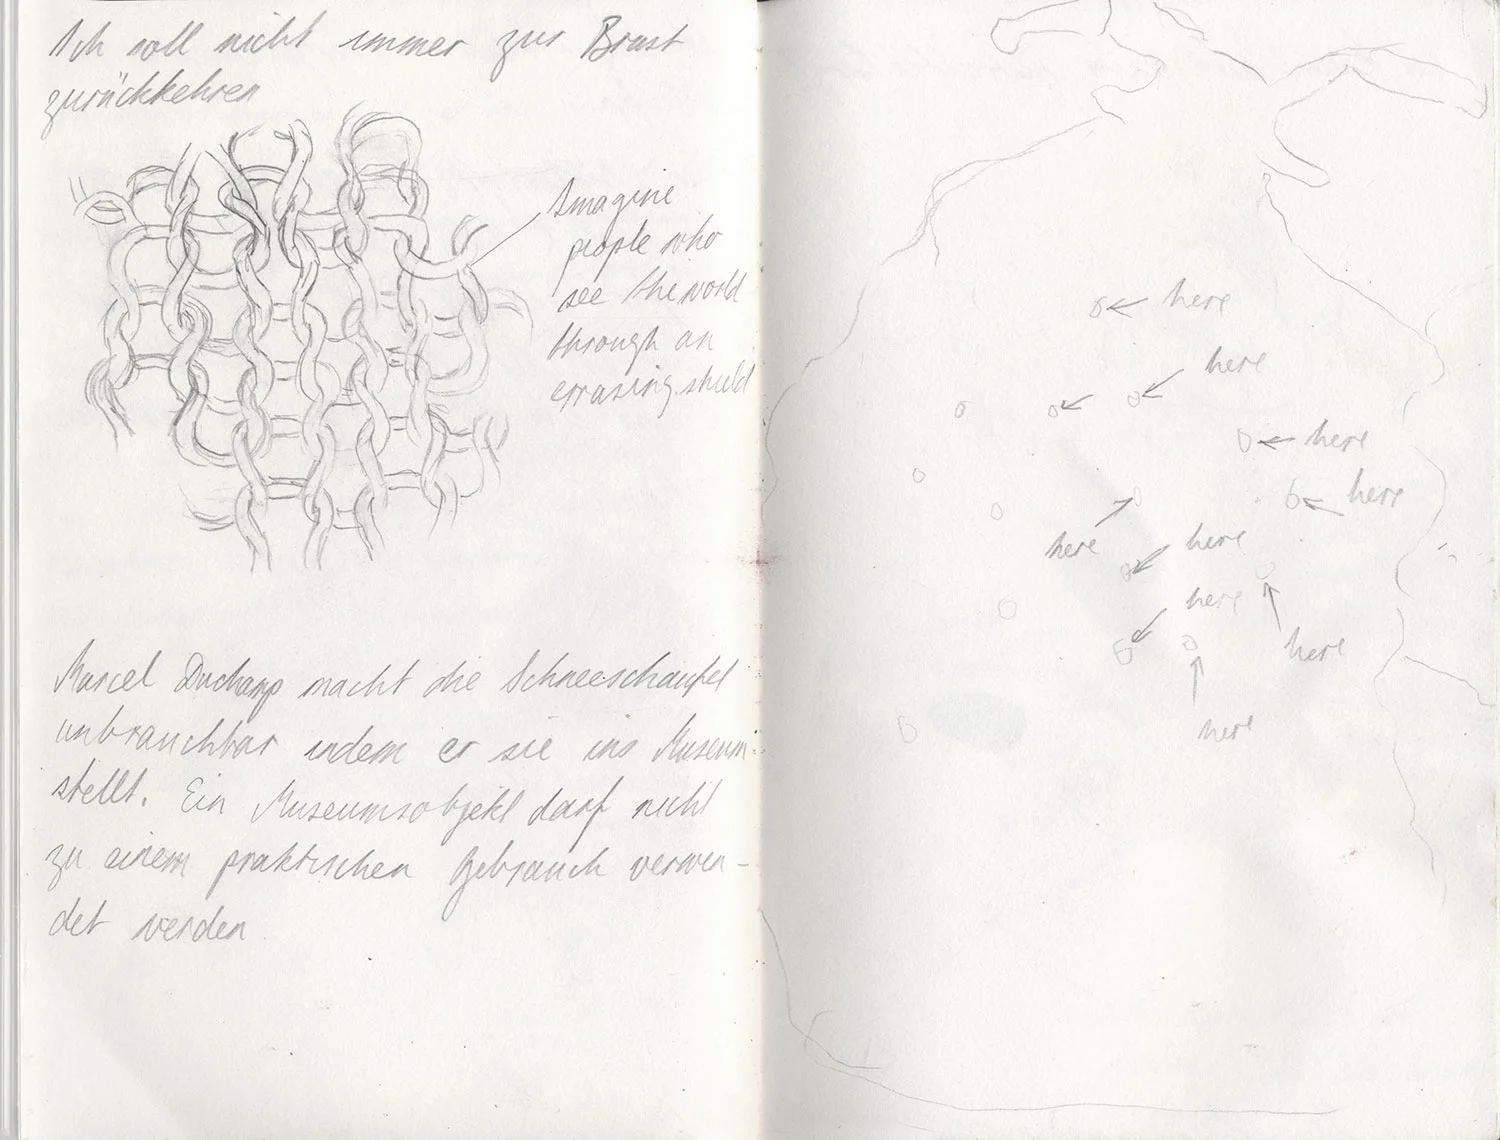 Ich soll nicht immer zur Brust
zurückkehren
Imagine
people who
see the world
through an
errasing shield
Marcel Duchamp macht die Schneeschaufel
unbrauchbar indem er sie ins Museum
stellt. Ein Museumsobjekt darf nicht
zu einem praktischen Gebrauch verwen-
det werden
here
here
here
here
here
here
here
here
here